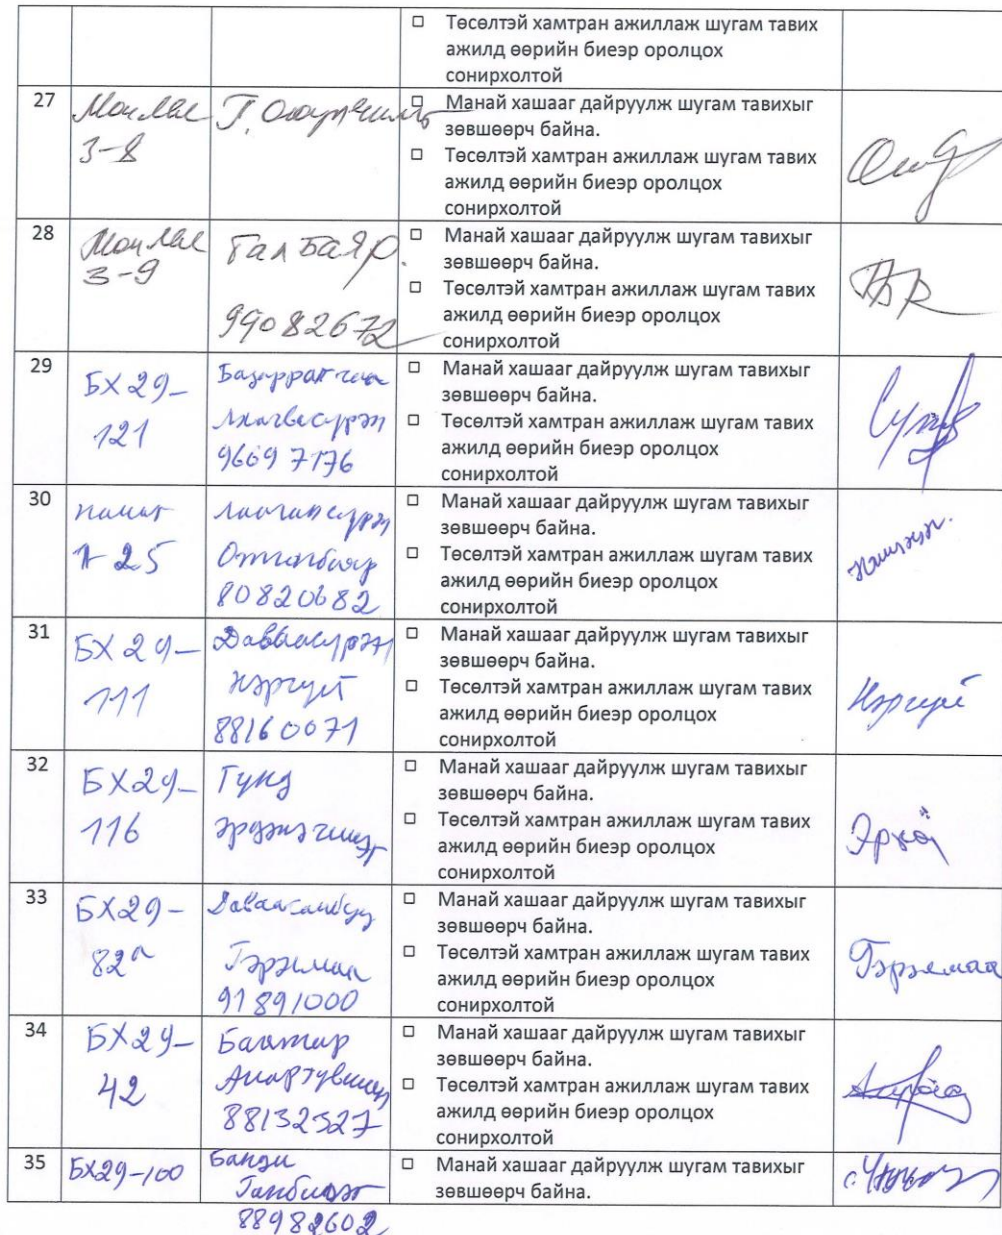 ☐ Төсөлтэй хамтран ажиллаж шугам тавих
ажилд өөрийн биеэр оролцох
сонирхолтой
27
3-8
☐ Манай хашааг дайруулж шугам тавихыг
зөвшөөрч байна.
☐ Төсөлтэй хамтран ажиллаж шугам тавих
ажилд өөрийн биеэр оролцох
сонирхолтой
28
3-9
Галбаяр.
99082672
☐ Манай хашааг дайруулж шугам тавихыг
зөвшөөрч байна.
☐ Төсөлтэй хамтран ажиллаж шугам тавих
ажилд өөрийн биеэр оролцох
сонирхолтой
29
БХ 29-
121
Лхагвасүрэн
96697176
☐ Манай хашааг дайруулж шугам тавихыг
зөвшөөрч байна.
☐ Төсөлтэй хамтран ажиллаж шугам тавих
ажилд өөрийн биеэр оролцох
сонирхолтой
30
25
Отгонбаяр
80820682
☐ Манай хашааг дайруулж шугам тавихыг
зөвшөөрч байна.
☐ Төсөлтэй хамтран ажиллаж шугам тавих
ажилд өөрийн биеэр оролцох
сонирхолтой
31
БХ 29-
111
Даваасүрэн
Нэргүй
88160071
☐ Манай хашааг дайруулж шугам тавихыг
зөвшөөрч байна.
☐ Төсөлтэй хамтран ажиллаж шугам тавих
ажилд өөрийн биеэр оролцох
сонирхолтой
Нэргүй
32
БХ29-
116
Гунд
Эрдэнэчимэг
☐ Манай хашааг дайруулж шугам тавихыг
зөвшөөрч байна.
☐ Төсөлтэй хамтран ажиллаж шугам тавих
ажилд өөрийн биеэр оролцох
сонирхолтой
33
БХ29-
82а
Даваасамбуу
Гэрэлмаа
91891000
☐ Манай хашааг дайруулж шугам тавихыг
зөвшөөрч байна.
☐ Төсөлтэй хамтран ажиллаж шугам тавих
ажилд өөрийн биеэр оролцох
сонирхолтой
Гэрэлмаа
34
БХ29-
42
Баатар
88132327
☐ Манай хашааг дайруулж шугам тавихыг
зөвшөөрч байна.
☐ Төсөлтэй хамтран ажиллаж шугам тавих
ажилд өөрийн биеэр оролцох
сонирхолтой
35
БХ29-100
Банди
Ганбилэг
88982602
☐ Манай хашааг дайруулж шугам тавихыг
зөвшөөрч байна.